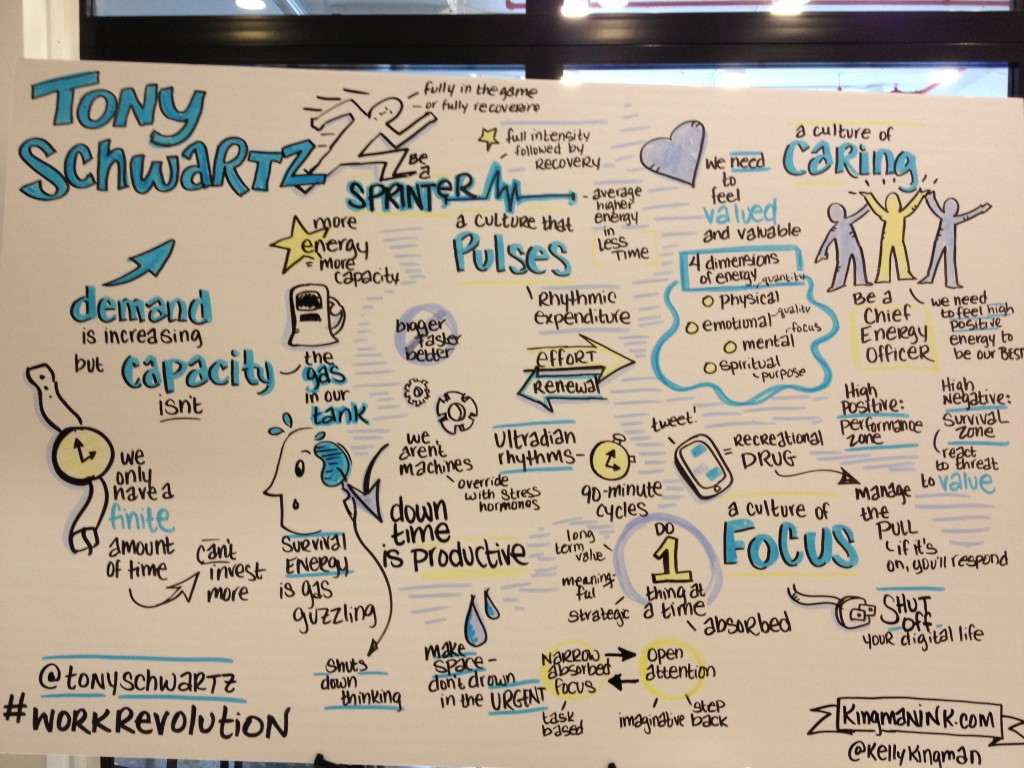 TONY
SCHWARTZ
fully in the game
or fully recovering
Be
a
SPRINTER
full intensity
followed by
RECOVERY
average
higher
energy
in
Less
Time
a culture that
Pulses
Rhythmic
expenditure
more
energy
= more
capacity
demand
is increasing
but capacity
isn't
the
gas
in our
tank
bigger
faster
better
we
aren't
machines
override
with stress
hormones
EFFORT
Renewal
Ultradian
rhythms
90-minute
cycles
we need
to
feel
valued
and valuable
a culture of
caring
4 dimensions
of energy
quantity
physical
quality
emotional
focus
mental
spiritual
purpose
Be a
Chief
Energy
Officer
we need
to feel high
positive
energy to
be our Best
High
Positive:
performance
zone
High
Negative:
Survival
Zone
react
to threat
to value
tweet!
= Recreational
DRUG
manage
the
PULL
if it's
on, you'll respond
a culture of
FOCUS
SHUT
OFF
your digital life
we
only
have a
finite
amount
of time
can't
invest
more
Survival
Energy
is gas
guzzling
shuts
down
thinking
down
time
is productive
make
space -
don't drown
in the URGENT
long
term
value
meaning-
ful
strategic
DO
1
thing at
a time
absorbed
Narrow
absorbed
focus
task
based
Open
attention
imaginative
step
back
@tonyschwartz
#workrevolution
Kingmanink.com
@KellyKingman